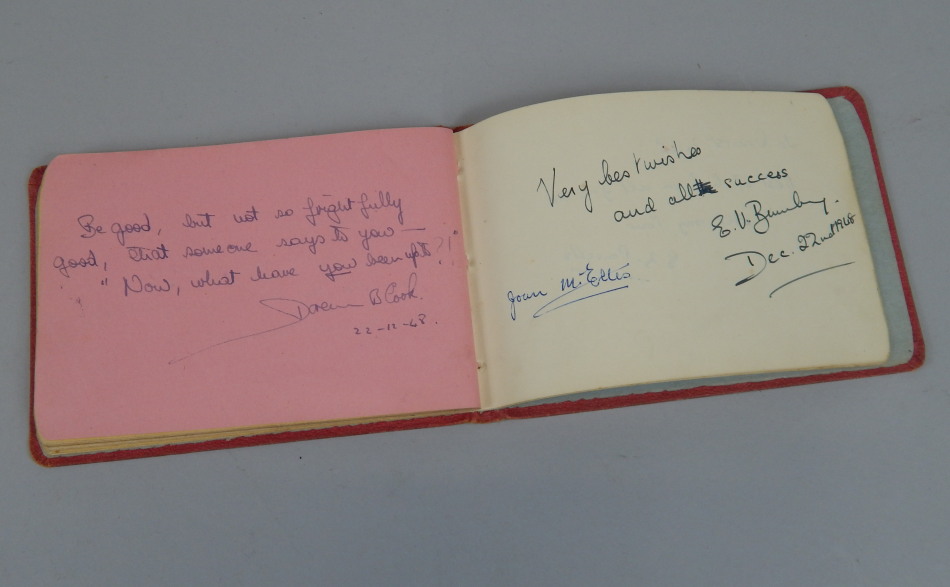 Be good, but not so frightfully
good, that someone says to you —
" Now, what have you been upto?!"
Doreen B Cook.
22-12-48.
Very best wishes
and all success
E. V.
Dec. 22nd 1948
Joan M. Ellis